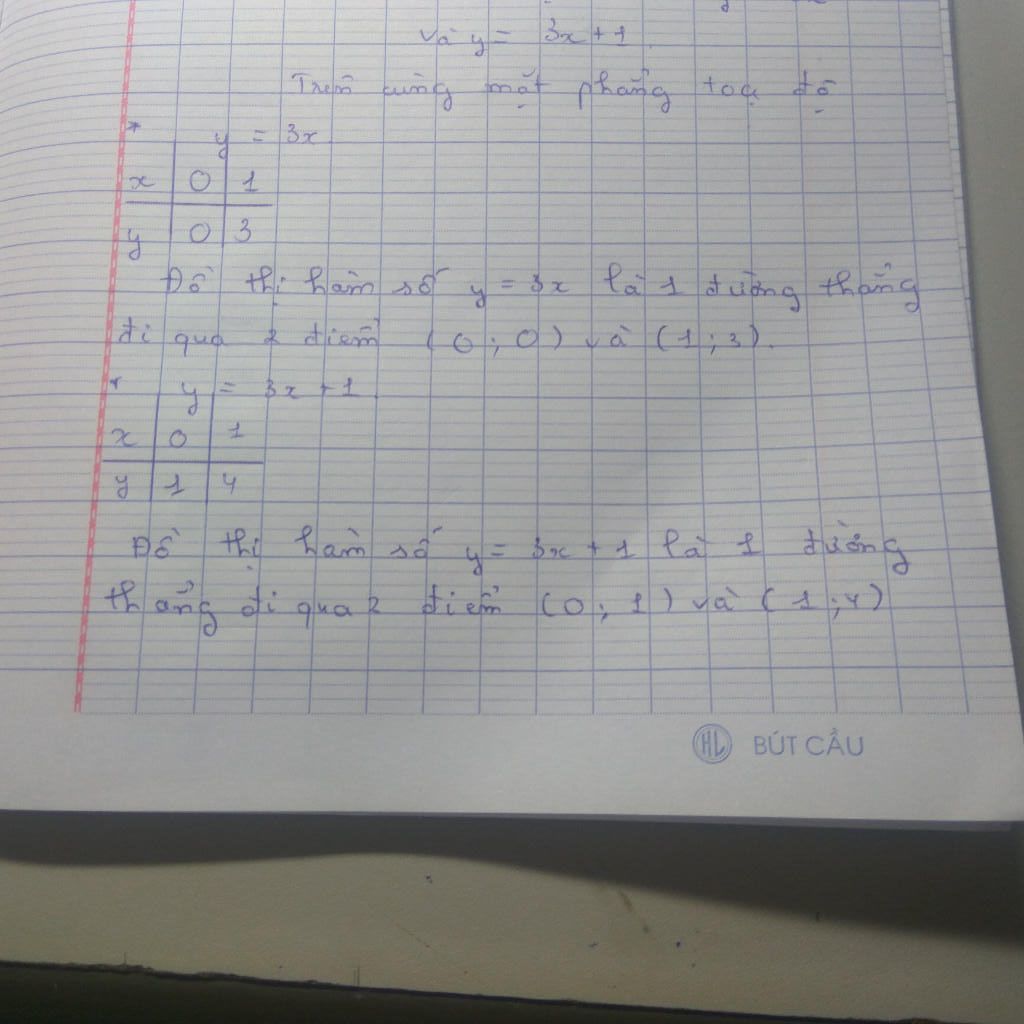 và y = 3x + 1
Trên cùng mặt phẳng toạ độ
* y = 3x
x 0 1
y 0 3
Đồ thị hàm số y = 3x là 1 đường thẳng
đi qua 2 điểm (0; 0) và (1; 3).
* y = 3x + 1
x 0 1
y 1 4
Đồ thị hàm số y = 3x + 1 là 1 đường
thẳng đi qua 2 điểm (0; 1) và (1; 4)
HL BÚT CẦU